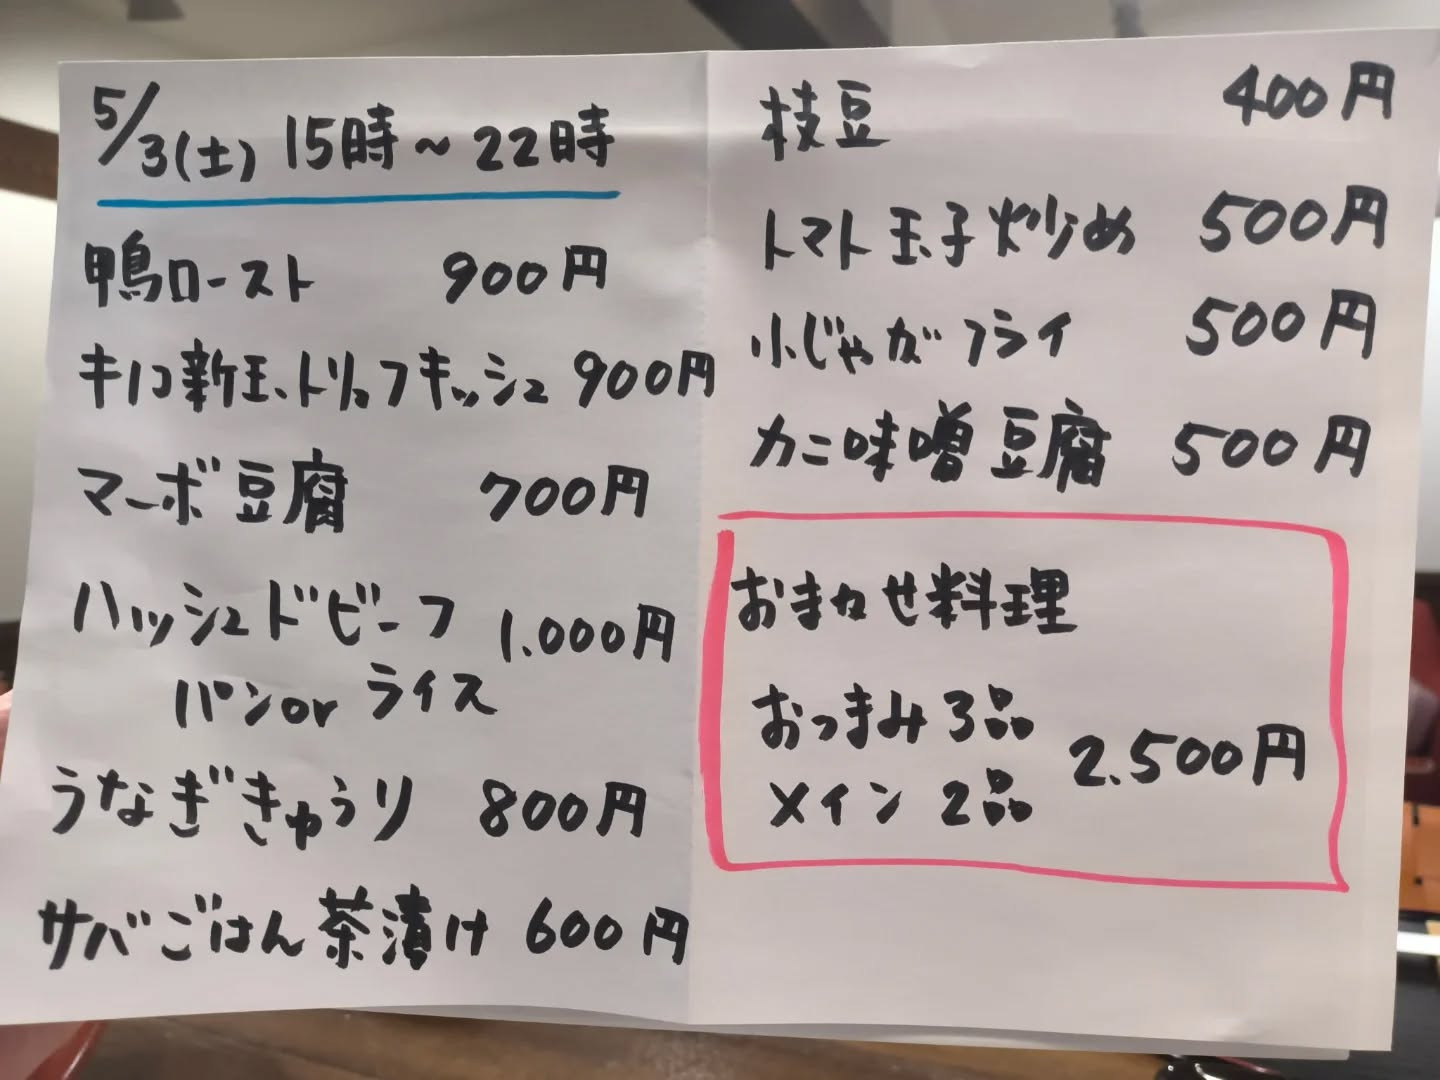 5/3(土) 15時～22時
鴨ロースト 900円
キノコ新玉、トリュフキッシュ 900円
マーボ豆腐 700円
ハッシュドビーフ 1.000円
パンor ライス
うなぎきゅうり 800円
サバごはん茶漬け 600円
枝豆 400円
トマト玉子炒め 500円
小じゃがフライ 500円
カニ味噌豆腐 500円
おまかせ料理
おつまみ3品
メイン 2品 2.500円